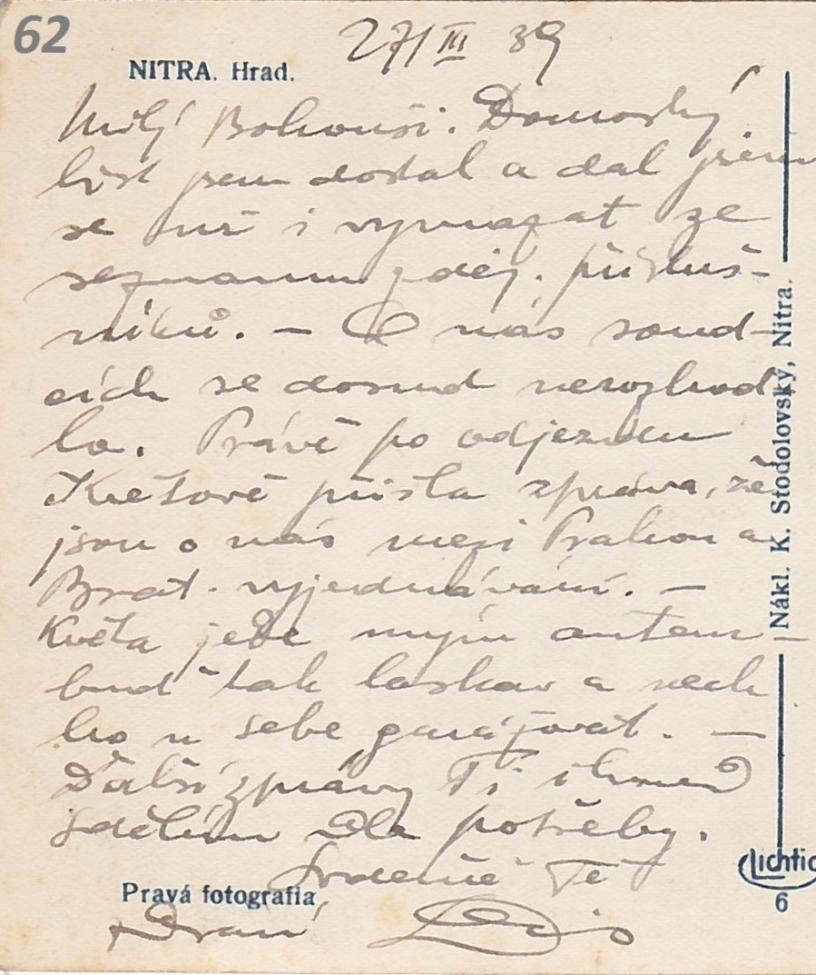 62
27/III 39
NITRA. Hrad.
Milý Bohouši. Domovský
list jsem dostal a dal jsem
se už i vymazat ze
seznamu zdej. přísluš-
níků. – O nás soud-
cích se dosud nerozhod-
lo. Právě po odjezdu
Květové přišla zpráva, že
jsou o nás mezi Prahou a
Brat. vyjednávání. –
Květa jede mým autem –
buď tak laskav a nech
ho u sebe garážovat. –
Další zprávy Ti ihned
sdělím dle potřeby.
Srdečně Tě
zdraví
Nákl. K. Stodolovský, Nitra.
Pravá fotografia
Lichtig
6